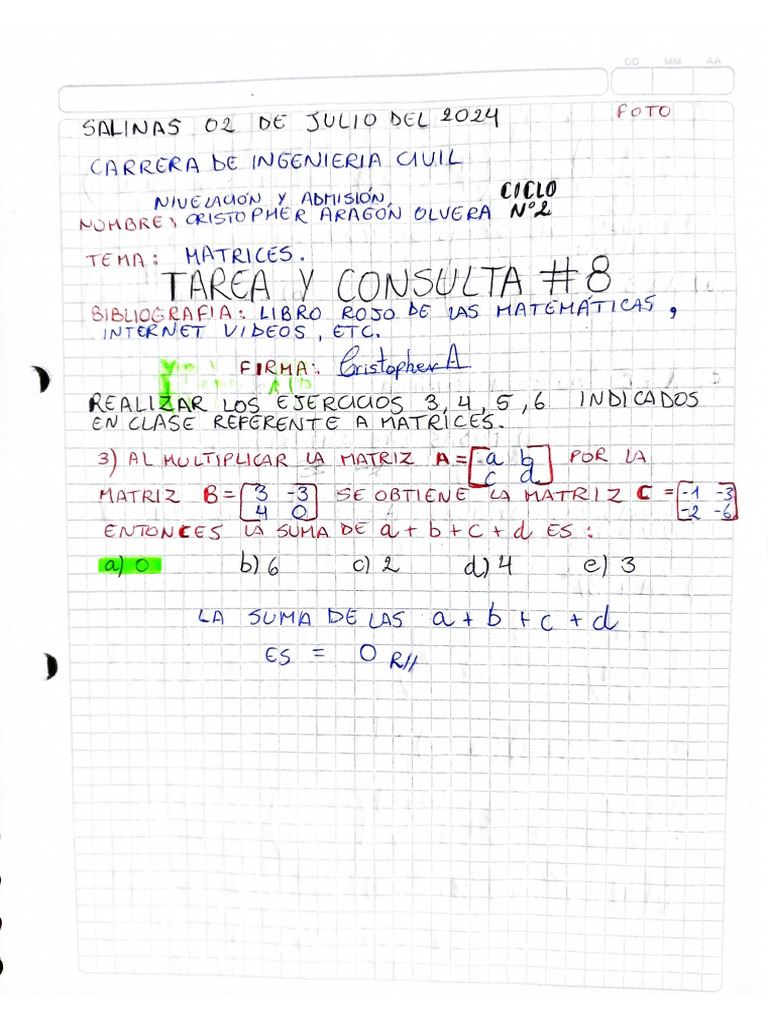 DD MM AA
FOTO
SALINAS 02 DE JULIO DEL 2024
CARRERA DE INGENIERIA CIVIL
NIVELACIÓN Y ADMISIÓN, CICLO
NOMBRE: CRISTOPHER ARAGÓN OLVERA Nº2
TEMA: MATRICES.
TAREA Y CONSULTA #8
BIBLIOGRAFIA: LIBRO ROJO DE LAS MATEMÁTICAS,
INTERNET VIDEOS, ETC.
FIRMA: Cristopher A
REALIZAR LOS EJERCICIOS 3, 4, 5, 6 INDICADOS
EN CLASE REFERENTE A MATRICES.
3) AL MULTIPLICAR LA MATRIZ A = [a b; c d] POR LA
MATRIZ B = [3 -3; 4 0] SE OBTIENE LA MATRIZ C = [-1 -3; -2 -6]
ENTONCES LA SUMA DE a + b + c + d ES:
a) 0 b) 6 c) 2 d) 4 e) 3
LA SUMA DE LAS a + b + c + d
ES = 0 R//